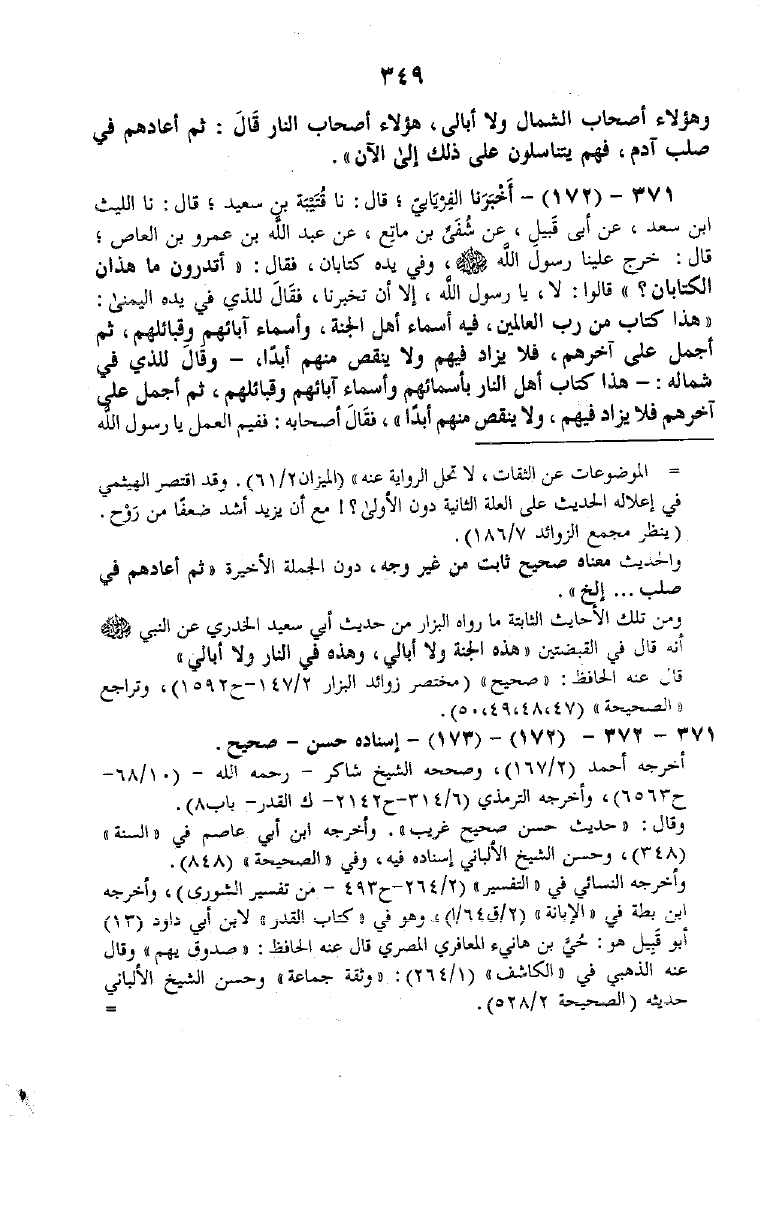 ٣٤٩
وهؤلاء أصحاب الشمال ولا أبالى، هؤلاء أصحاب النار قَالَ : ثم أعادهم في
صلب آدم ، فهم يتناسلون على ذلك إلىٰ الآن» .
٣٧١ – (١٧٢) – أَخْبَرَنا الفِرْيَابيّ ؛ قال: نا قُتَيْبَة بن سعيد ؛ قال: نا الليث
ابن سعد ، عن أبى قَبيل ، عن شُفَيّ بن ماتع ، عن عبد الله بن عمرو بن العاص ؛
قال : خرج علينا رسول الله ﷺ ، وفي يده كتابان، فقال : « أتدرون ما هذان
الكتابان ؟ » قالوا : لا ، يا رسول الله ، إلا أن تخبرنا ، فقَالَ للذي في يده اليمنىٰ :
« هذا كتاب من رب العالمين، فيه أسماء أهل الجنة ، وأسماء آبائهم وقبائلهم، ثم
أجمل على آخرهم، فلا يزاد فيهم ولا ينقص منهم أبدًا، – وقَالَ للذي في
شماله : – هذا كتاب أهل النار بأسمائهم وأسماء آبائهم وقبائلهم ، ثم أجمل على
آخرهم فلا يزاد فيهم ، ولا ينقص منهم أبدًا » ، فقَالَ أصحابه : ففيم العمل يا رسول الله
= الموضوعات عن الثقات ، لا تحل الرواية عنه» (الميزان٦١/٢) . وقد اقتصر الهيثمي
في إعلاله الحديث على العلة الثانية دون الأولىٰ؟! مع أن يزيد أشد ضعفًا من رَوْح .
(ينظر مجمع الزوائد ١٨٦/٧).
والحديث معناه صحيح ثابت من غير وجه، دون الجملة الأخيرة «ثم أعادهم في
صلب ... إلخ» .
ومن تلك الأحايث الثابتة ما رواه البزار من حديث أبي سعيد الخدري عن النبي ﷺ
أنه قال في القبضتين «هذه الجنة ولا أبالي، وهذه في النار ولا أبالي»
قال عنه الحافظ : «صحيح» (مختصر زوائد البزار ١٤٧/٢–ح١٥٩٢)، وتراجع
«الصحيحة» (٤٧،٤٨،٤٩،٥٠).
٣٧١ – ٣٧٢ – (١٧٢) – (١٧٣) – إسناده حسن – صحيح .
أخرجه أحمد (١٦٧/٢)، وصححه الشيخ شاكر – رحمه الله – (٦٨/١٠–
ح٦٥٦٣)، وأخرجه الترمذي (٣١٤/٦–ح٢١٤٢– ك القدر– باب٨).
وقال : «حديث حسن صحيح غريب». وأخرجه ابن أبي عاصم في «السنة»
(٣٤٨)، وحسن الشيخ الألباني إسناده فيه، وفي «الصحيحة» (٨٤٨).
وأخرجه النسائي في «التفسير» (٢٦٤/٢–ح٤٩٣ – من تفسير الشورى)، وأخرجه
ابن بطة في «الإبانة» (٢/ق٦٤/أ)، وهو في «كتاب القدر» لابن أبي داود (١٣)
أبو قَبِيل هو : حُيَيّ بن هانيء المعافري المصري قال عنه الحافظ : «صدوق يهم» وقال
عنه الذهبي في «الكاشف» (٢٦٤/١): «وثقة جماعة» وحسن الشيخ الألباني
حديثه (الصحيحة ٥٢٨/٢). =